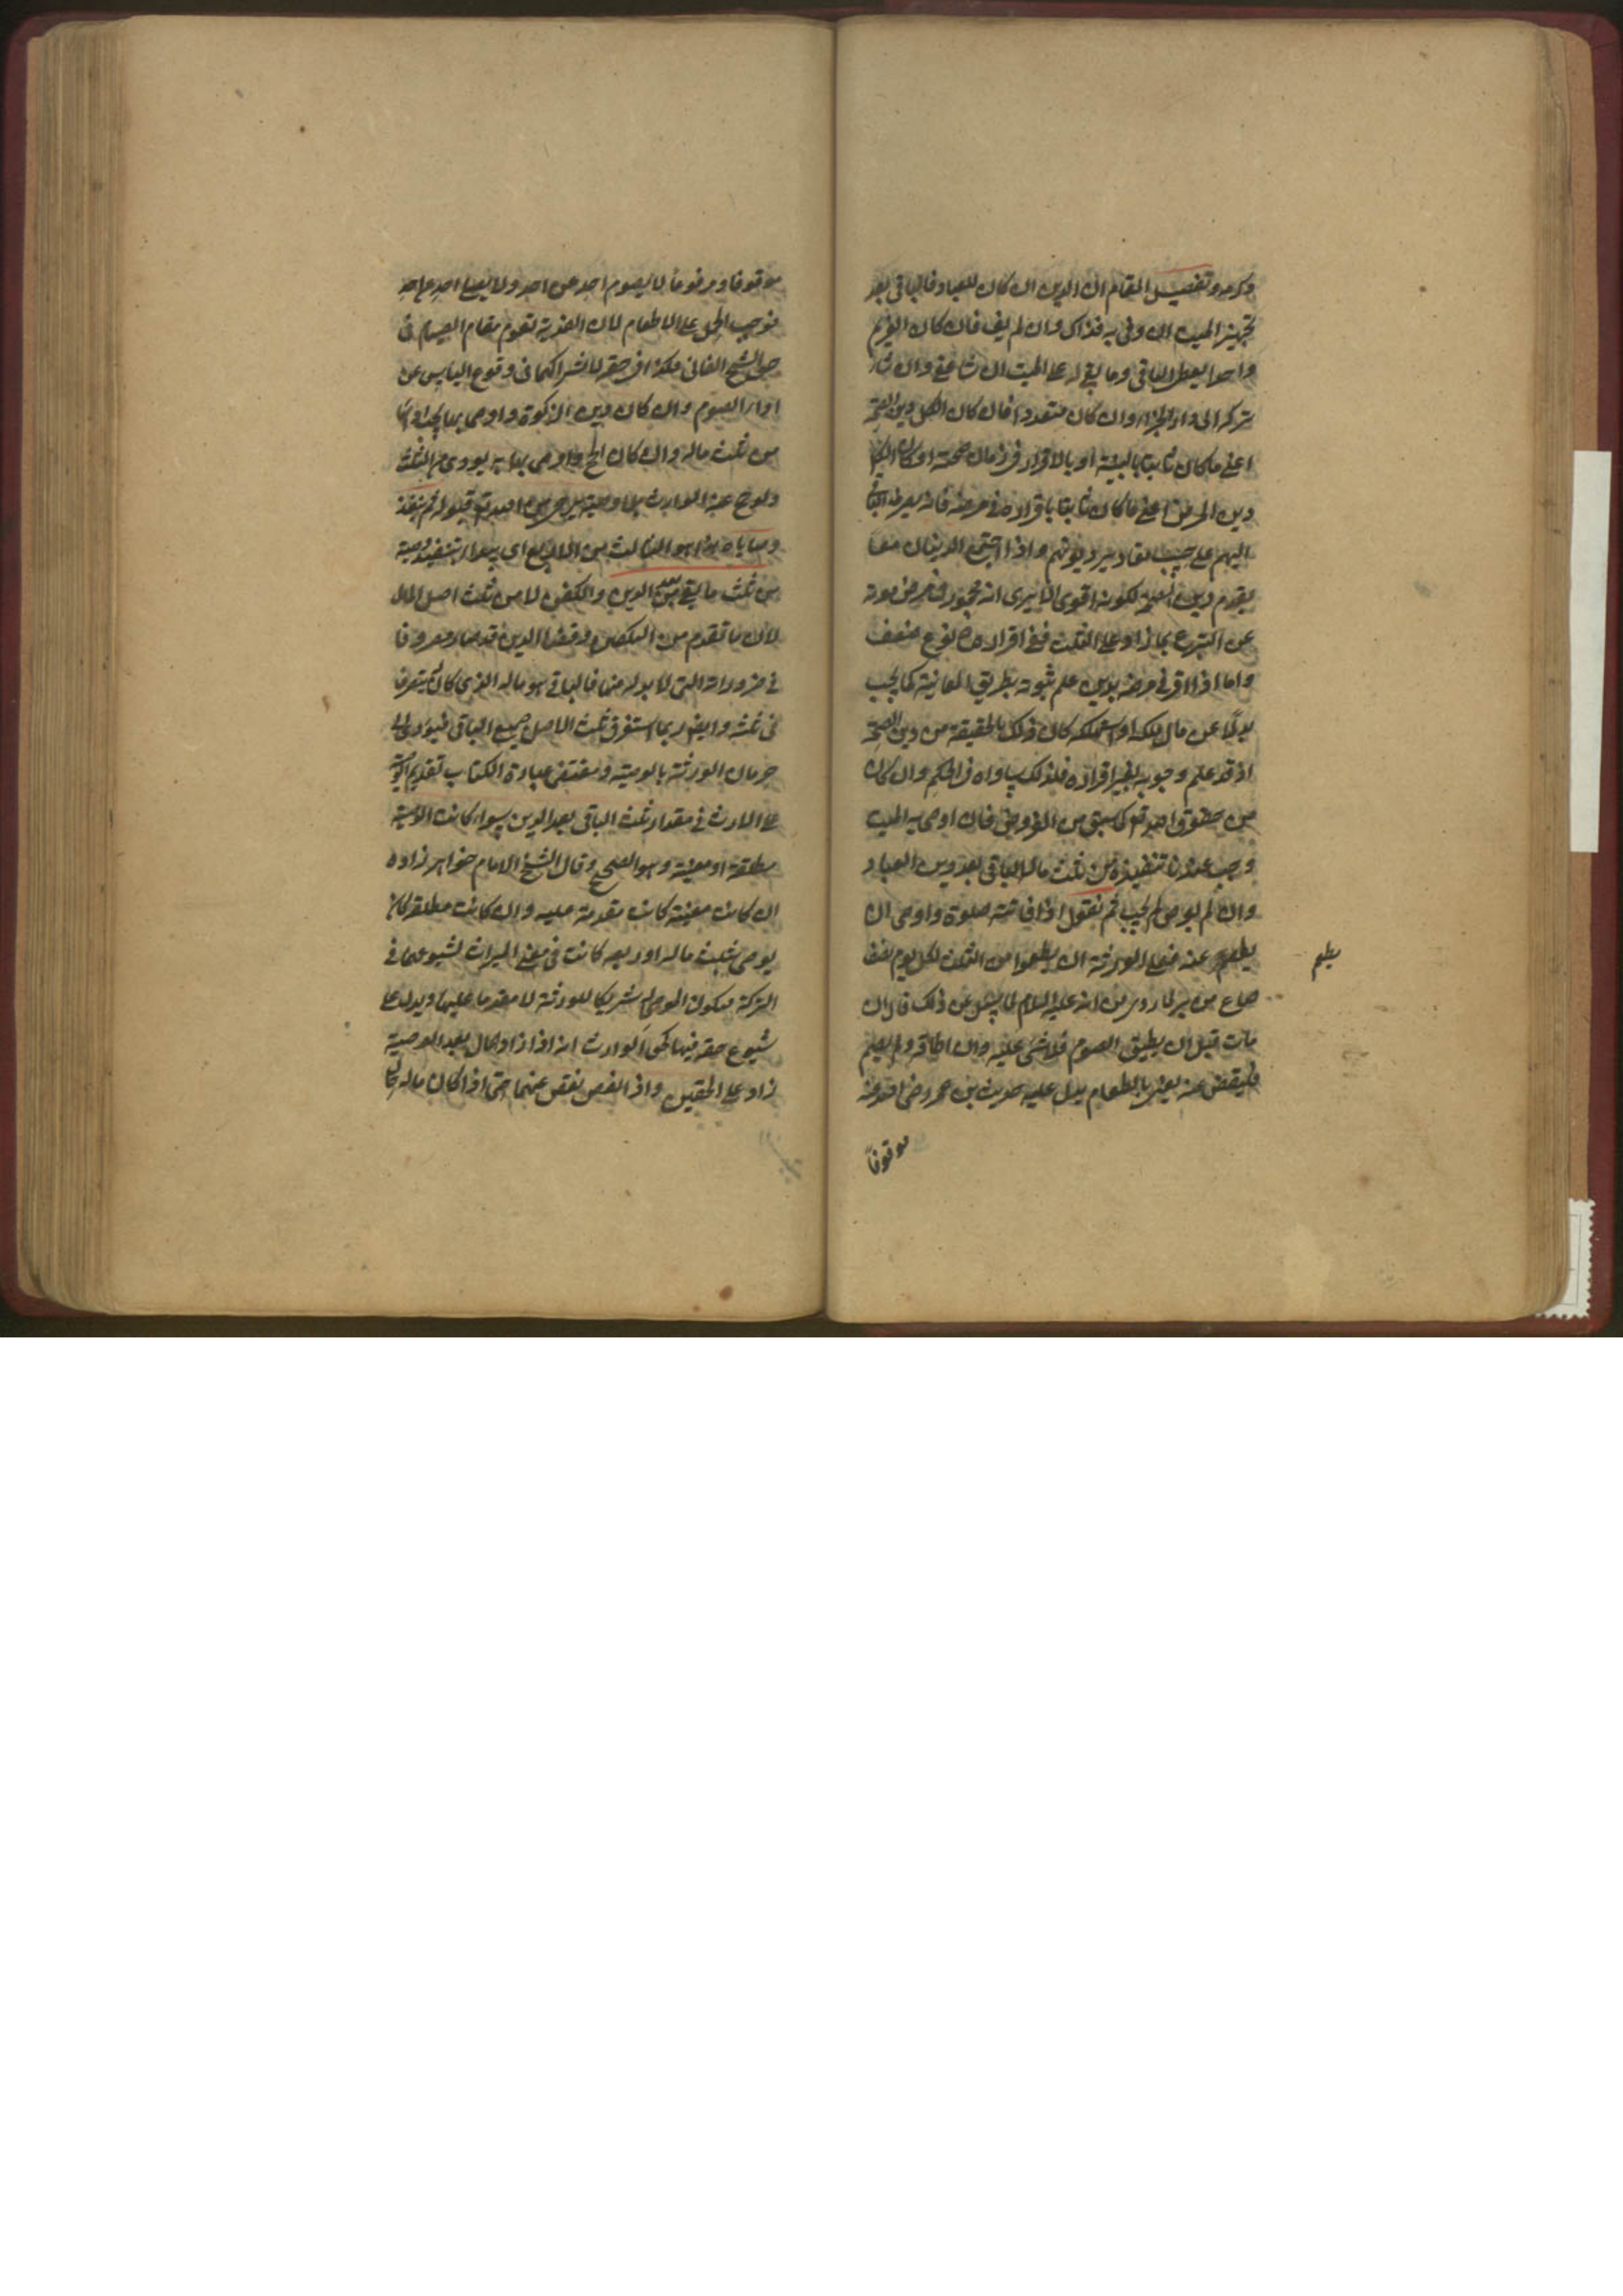 وكرمه وتفصيل المقام ان الدين ان كان للعباد فالباقى بعد
تجهيز الميت ان وفى به فذاك وان لم يف فان كان الغريم
واحدا يعطى الباقى وما بقى له على الميت ان شاء عفى وان شاء
تركه الى دار الجزاء وان كان متعددا فان كان الكل دين الصحة
اعنى ما كان ثابتا بالبينة او بالاقرار فى زمان صحته او كان الكل
دين المرض اعنى ما كان ثابتا باقراره فى مرضه فانه يصرف الباقى
اليهم على حسب مقادير ديونهم واذا اجتمع الدينان معا
يقدم دين الصحة لكونه اقوى الا يرى انه محجور فى مرض موته
عن التبرع بما زاد على الثلث ففى اقراره نوع ضعف
واما اذا اقر فى مرضه بدين علم ثبوته بطريق المعاينة كما يجب
بدلا عن مال ملكه او استهلكه كان ذلك بالحقيقة من دين الصحة
اذ قد علم وجوبه بغير اقراره فلذلك ساواه فى الحكم وان كان
من حقوق الله تع كما سبق من الفروض فان اوصى به الميت
وجب عندنا تنفيذه من ثلث ماله الباقى بعد دين العباد
وان لم يوص لم يجب ثم نقول اذا فاتته صلوة واوصى ان
يطعم عنه فعلى الورثة ان يطعموا من الثلث لكل يوم نصف
يطعم
صاع من بر لما روى من انه عليه السلام لما سئل عن ذلك قال ان
مات قبل ان يطيق الصوم فلا شئ عليه وان اطاقه ولم يصم
فليقض عنه يعنى بالطعام يدل عليه حديث بن عمر رضى الله عنه
موقوفاً
موقوفا ومرفوعا لا يصوم احد عن احد ولا يصلى احد عن احد
فوجب الحمل على الاطعام لان الفدية تقوم مقام الصيام فى
حق الشيخ الفانى فكذا فى حقه لاشتراكهما فى وقوع اليأس عن
اداء الصوم وان كان دين الزكوة واوصى بها يجب اداؤها
من ثلث ماله وان كان الحج واوصى بادائه يؤدى من الثلث
ولو حج عنه الوارث بلا وصية يرجى من الله تع قبوله ثم تنفذ
وصاياه هذا هو الثالث من الاربع اى يبدأ بتنفيذ وصيته
من ثلث ما بقى بعد الدين والكفن لا من ثلث اصل المال
لان ما تقدم من التكفين وقضاء الدين قد صار مصروفا
فى ضروراته التى لا بد له منها فالباقى هو ماله الذى كان له يتصرف
فى ثلثه وايضا ربما استغرق ثلث الاصل جميع الباقى فيؤدى الى
حرمان الورثة بالوصية ومقتضى عبارة الكتاب تقديم الوصية
على الارث فى مقدار ثلث الباقى بعد الدين سواء كانت الوصية
مطلقة او معينة وهو الصحيح وقال الشيخ الامام خواهر زاده
ان كانت معينة كانت مقدمة عليه وان كانت مطلقة كان
يوصى بثلث ماله او ربعه كانت فى معنى الميراث لشيوعها فى
التركة فيكون الموصى له شريكا للورثة لا مقدما عليها ويدل على
شيوع حقه فيها كحق الوارث انه اذا زاد المال بعد الوصية
زاد على الحقين واذا نقص نقص عنهما حتى اذا كان ماله